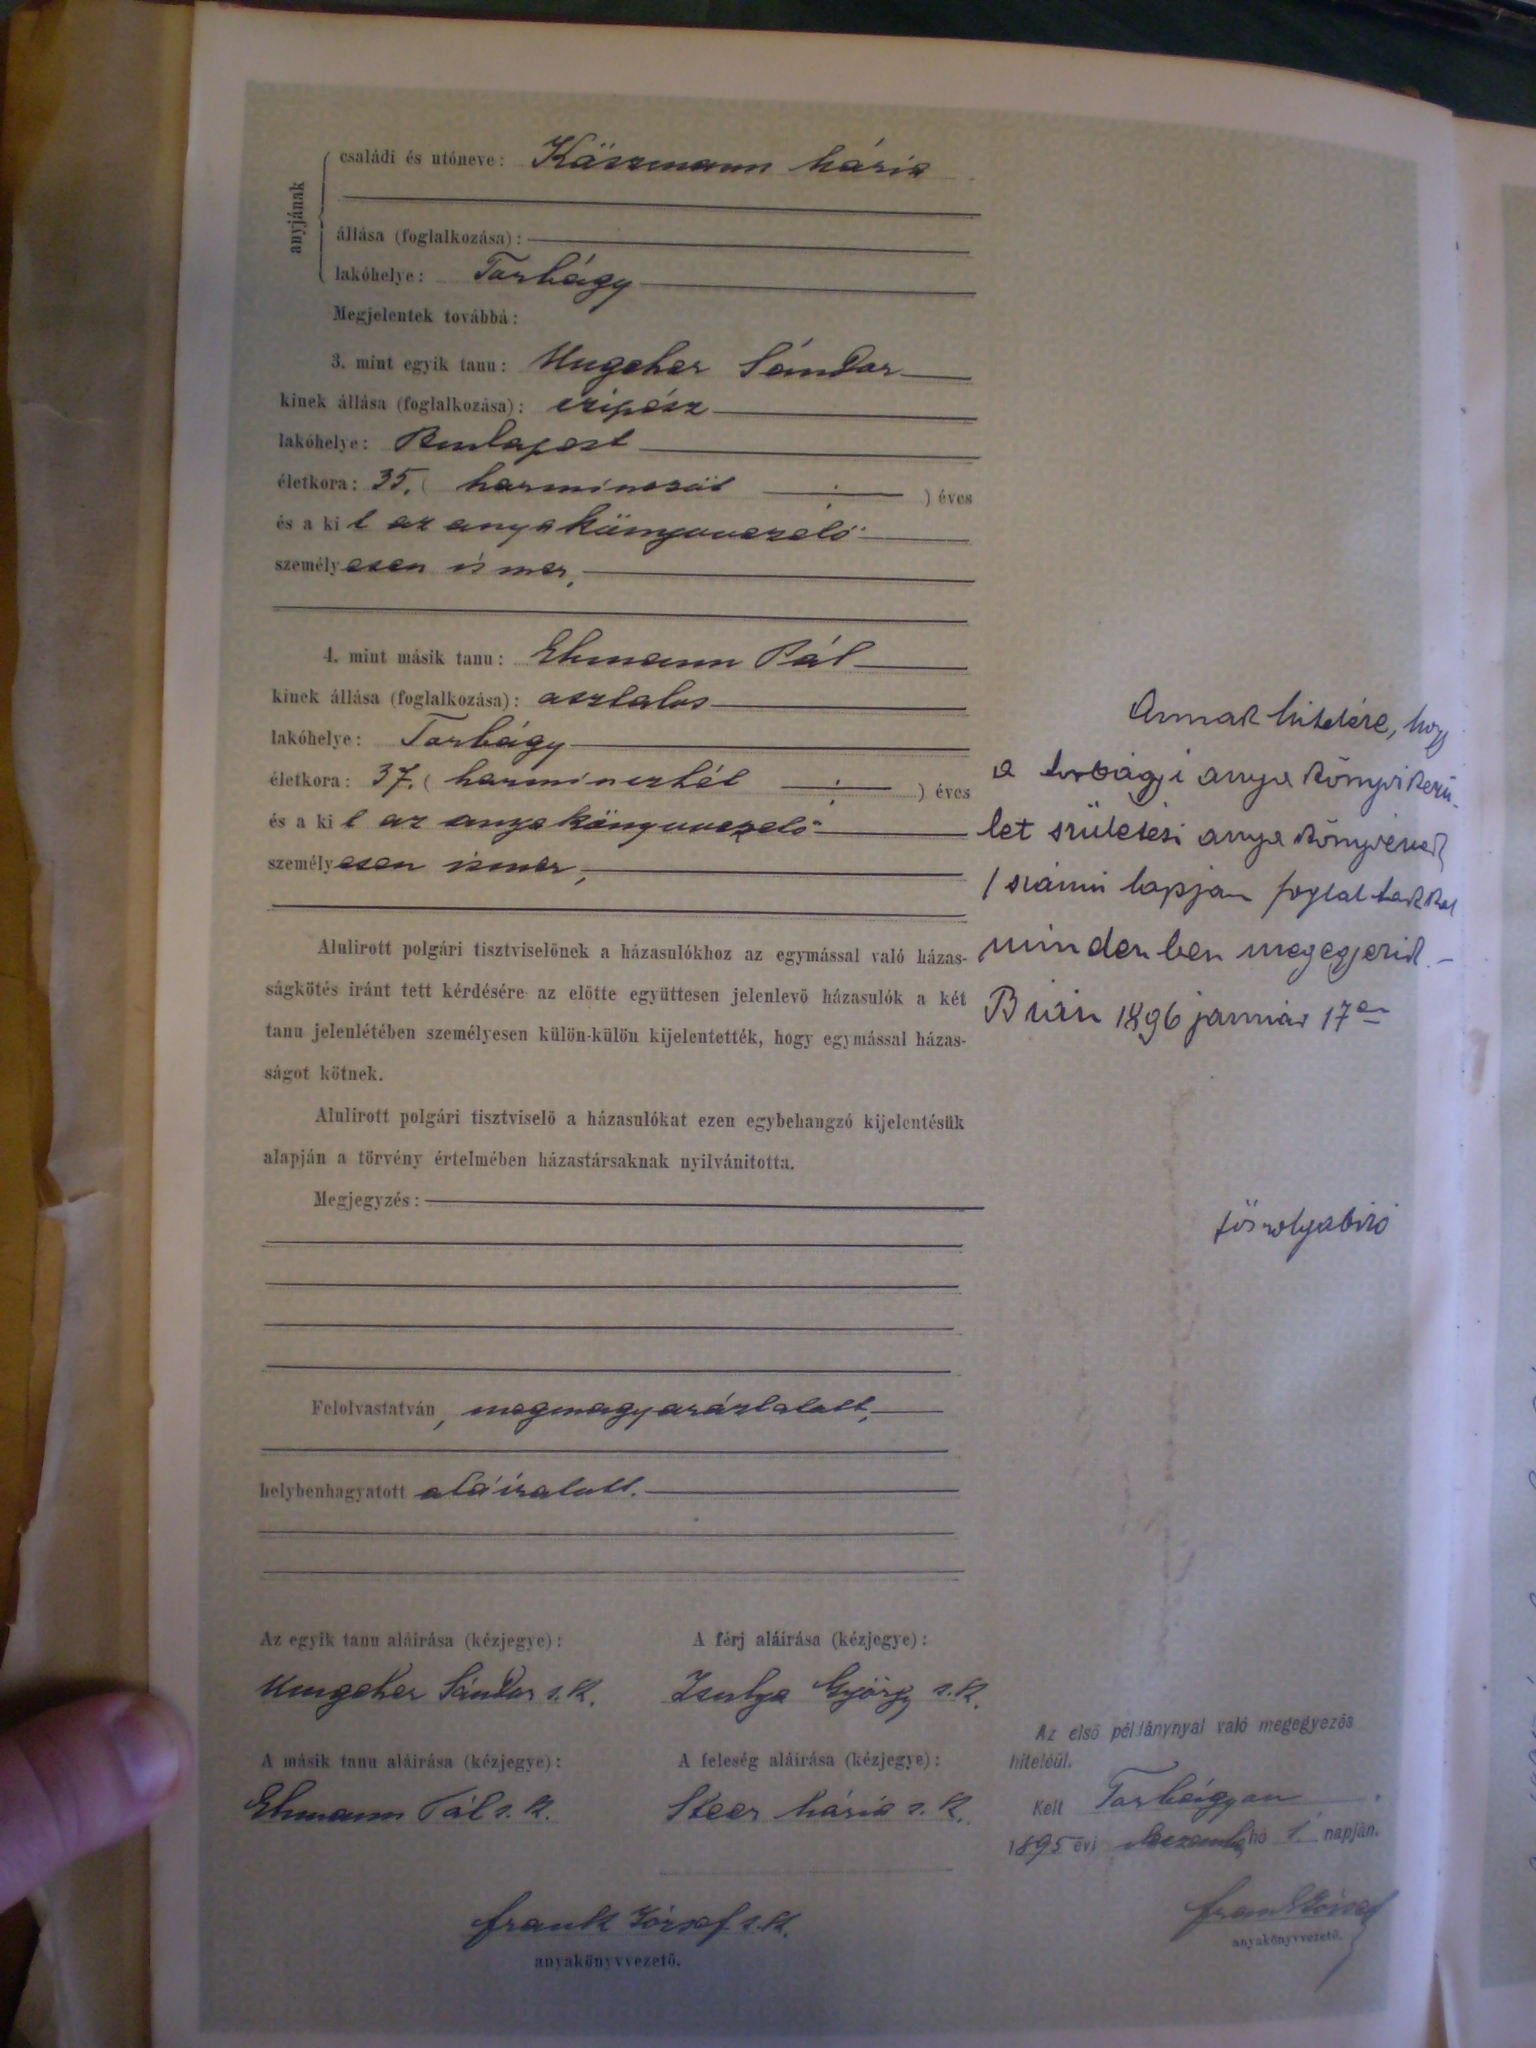 anyjának
családi és utóneve: Käszmann Mária
állása (foglalkozása):
lakóhelye: Torbágy
Megjelentek továbbá:
3. mint egyik tanu: Ungeher Sándor
kinek állása (foglalkozása): czipész
lakóhelye: Budapest
életkora: 35. ( harminczöt ) éves
és a kit az anyakönyvvezető
személyesen ismer,
4. mint másik tanu: Ehmann Pál
kinek állása (foglalkozása): asztalos
lakóhelye: Torbágy
életkora: 37. ( harminczhét ) éves
és a kit az anyakönyvvezető
személyesen ismer,
Alulirott polgári tisztviselőnek a házasulókhoz az egymással való házas-
ságkötés iránt tett kérdésére az előtte együttesen jelenlevő házasulók a két
tanu jelenlétében személyesen külön-külön kijelentették, hogy egymással házas-
ságot kötnek.
Alulirott polgári tisztviselő a házasulókat ezen egybehangzó kijelentésük
alapján a törvény értelmében házastársaknak nyilvánitotta.
Megjegyzés:
Felolvastatván, megmagyaráztatott,
helybenhagyatott aláiratott.
Az egyik tanu aláirása (kézjegye):
Ungeher Sándor s. k.
A férj aláirása (kézjegye):
György s. k.
A másik tanu aláirása (kézjegye):
Ehmann Pál s. k.
A feleség aláirása (kézjegye):
Steer Mária s. k.
Frank József s. k.
anyakönyvvezető.
Annak hitelére, hogy
a torbágyi anyakönyvi kerü-
let születési anyakönyvének
1 számú lapján foglaltakkal
mindenben megegyezik. –
Bián 1896 január 17én
főszolgabiró
Az első példánynyal való megegyezés
hiteléül.
Kelt Torbágyon
1895 évi deczember hó 1. napján.
Frank József
anyakönyvvezető.